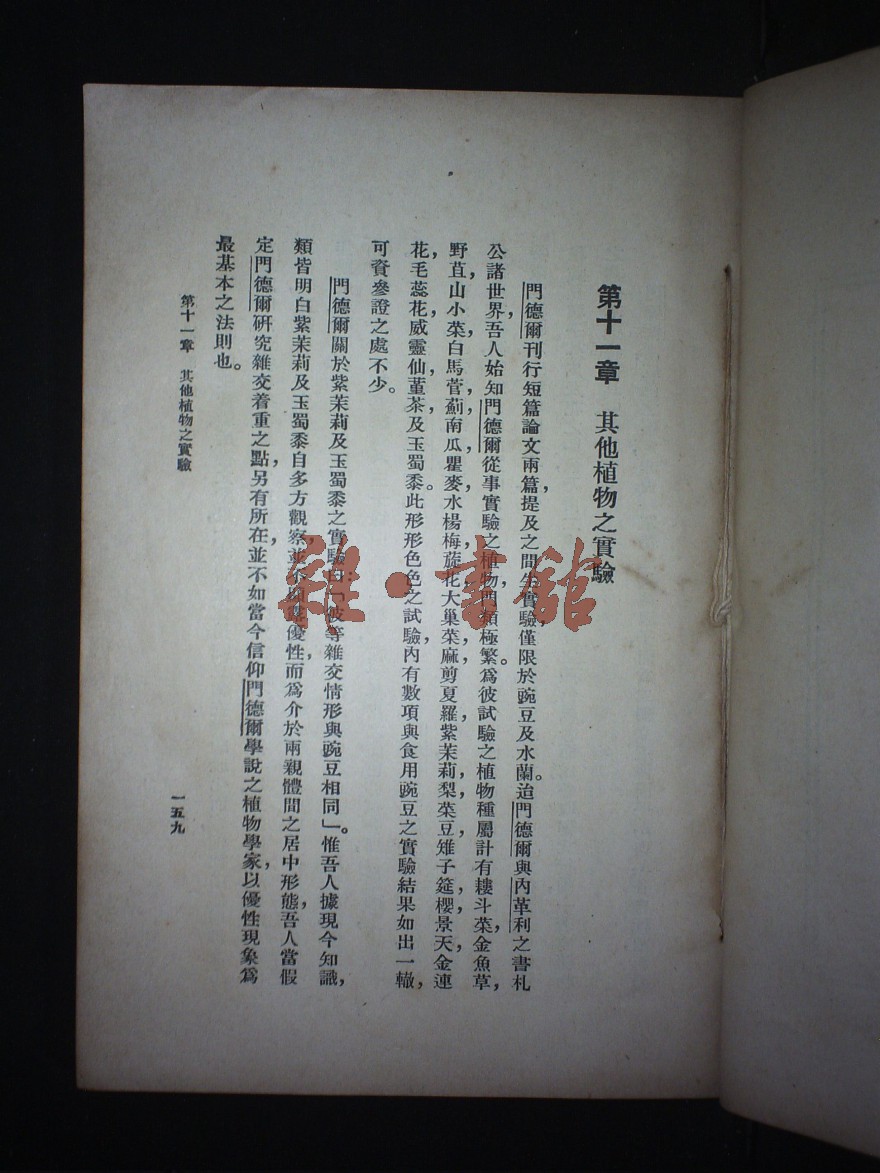 第十一章　其他植物之實驗
門德爾刊行短篇論文兩篇，提及之間年實驗，僅限於豌豆及水蘭。迨門德爾與內革利之書札
公諸世界，吾人始知門德爾從事實驗之植物，門類極繁。爲彼試驗之植物種屬，計有耬斗菜，金魚草，
野苴，山小菜，白馬菅，薊，南瓜，瞿麥，水楊梅，旋花，大巢菜，麻，剪夏羅，紫茉莉，梨，菜豆，雉子筵，櫻，景天，金連
花，毛蕊花，威靈仙，菫茶，及玉蜀黍。此形形色色之試驗，內有數項與食用豌豆之實驗結果如出一轍，
可資參證之處不少。
門德爾關於紫茉莉及玉蜀黍之實驗曰：「彼等雜交情形與豌豆相同」。惟吾人據現今知識，
類皆明白紫茉莉及玉蜀黍自多方觀察，並不顯露優性，而爲介於兩親體間之居中形態，吾人當假
定門德爾研究雜交着重之點，另有所在，並不如當今信仰門德爾學說之植物學家，以優性現象爲
最基本之法則也。
第十一章　其他植物之實驗
一五九
雜·書館